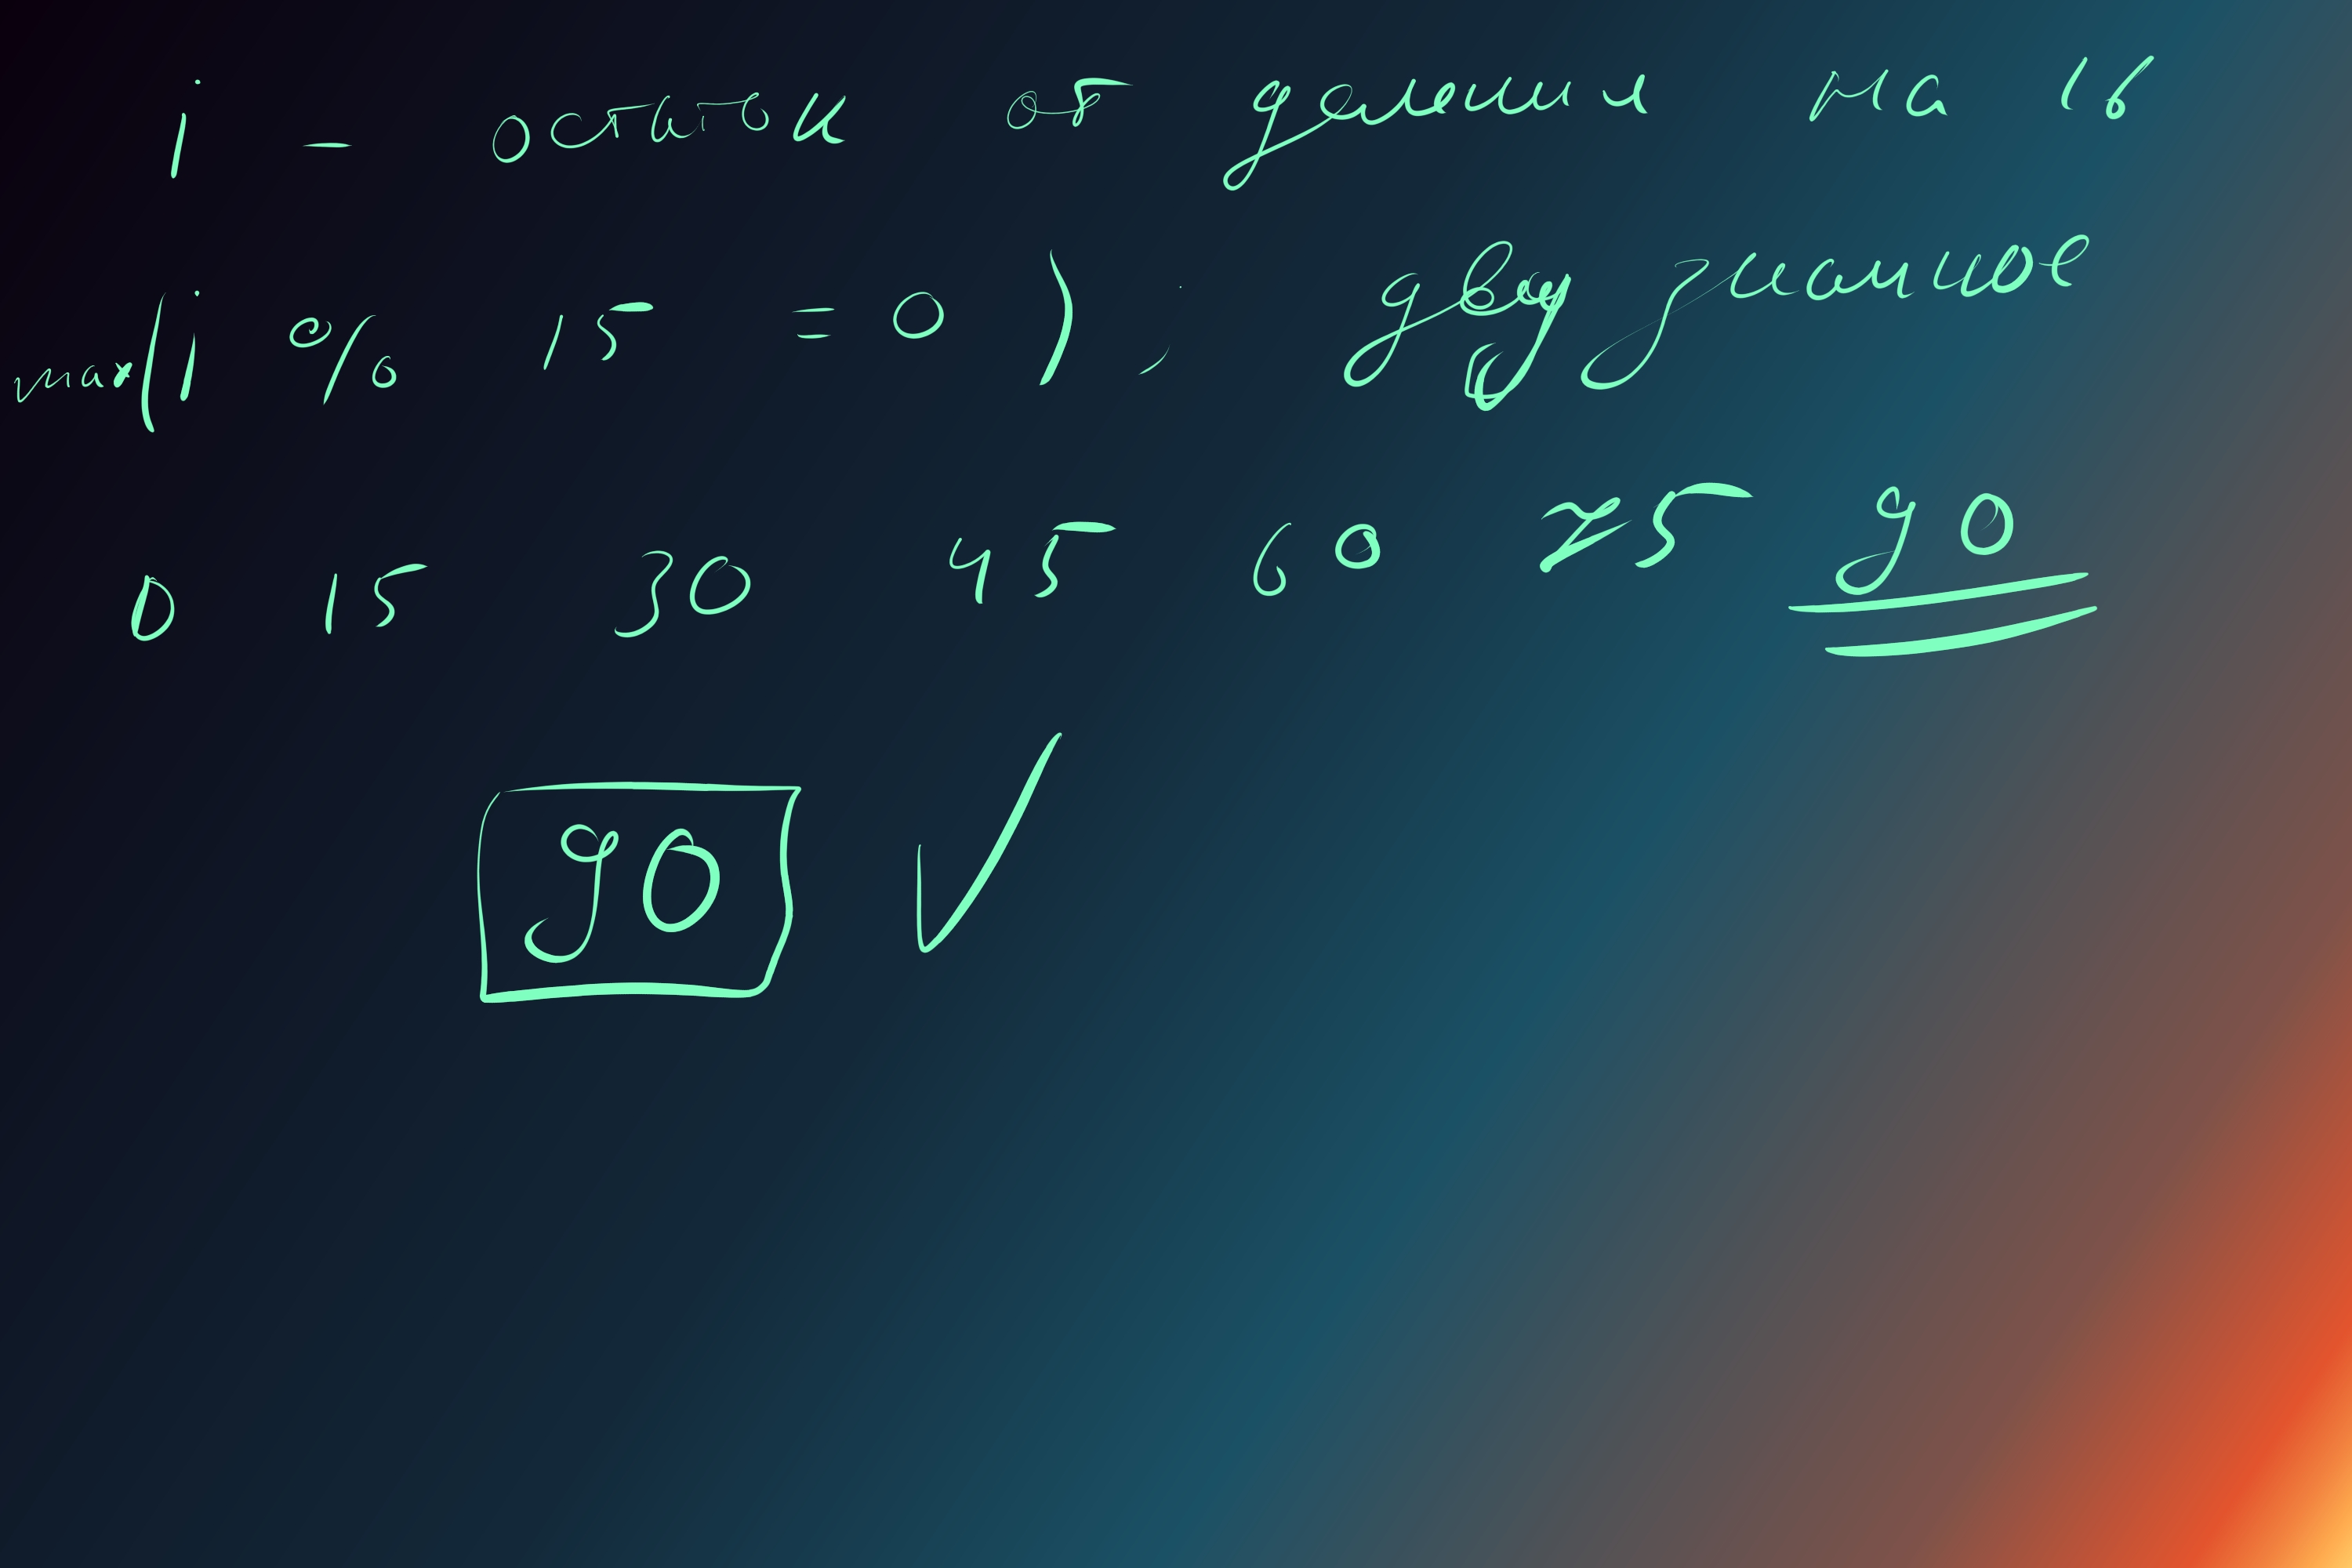 i - остаток от деления на 16
max(i % 15 = 0), двузначное
0 15 30 45 60 75 90
90 ✓